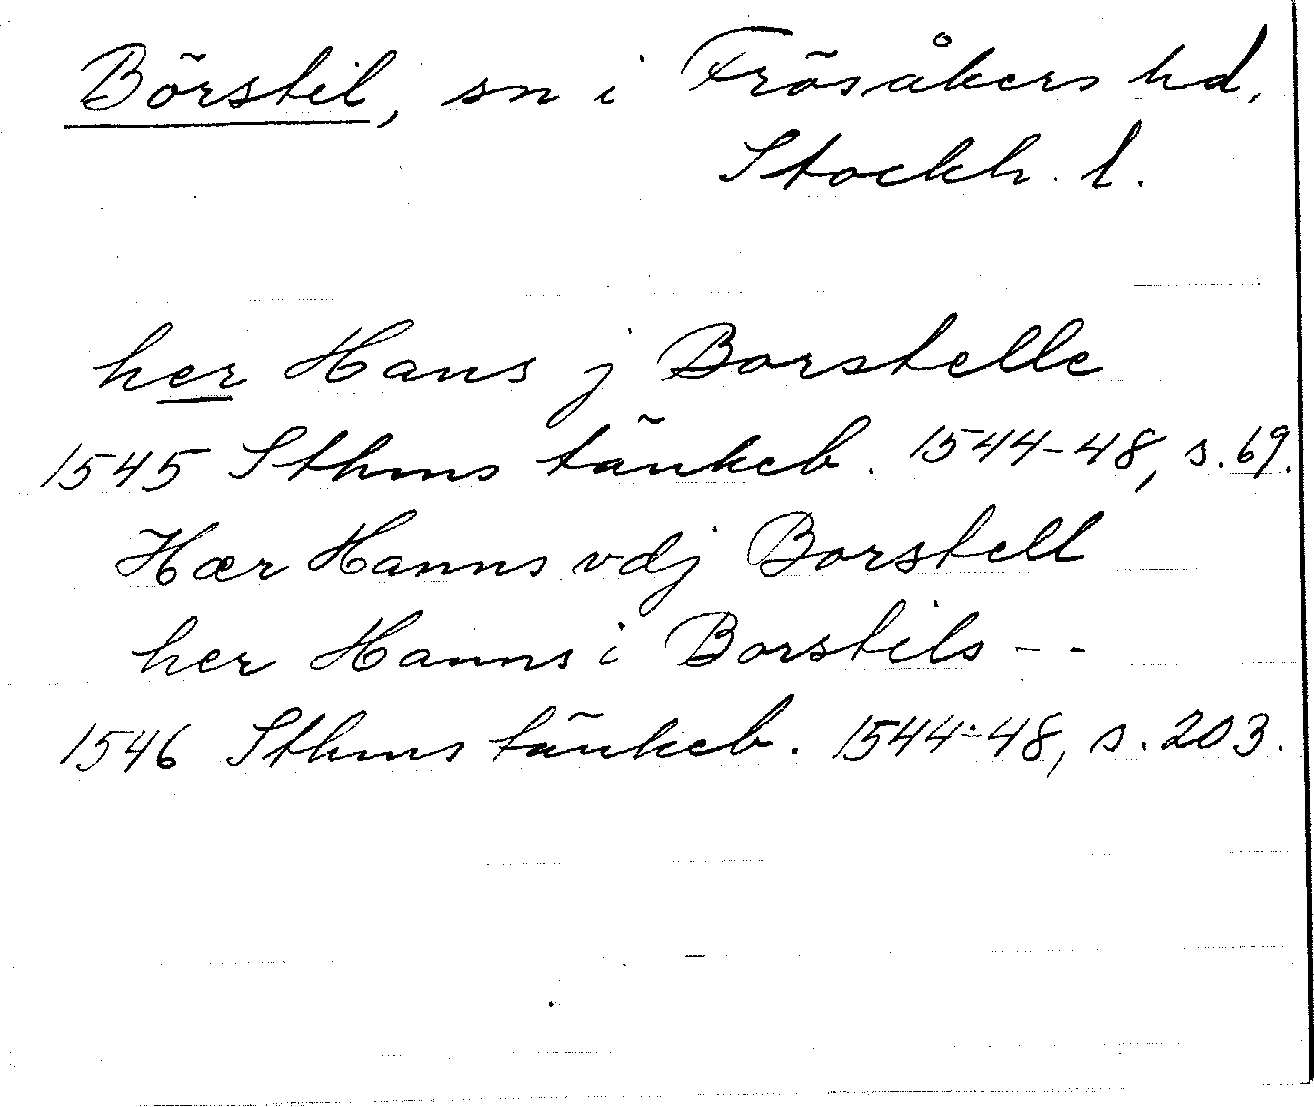 Börstil, sn i Frösåkers hd,
Stockh. l.
her Hans j Borstelle
1545 Sthms tänkeb. 1544-48, s. 69.
Hær Hanns vdj Borstell
her Hanns i Borstils - -
1546 Sthms tänkeb. 1544-48, s. 203.